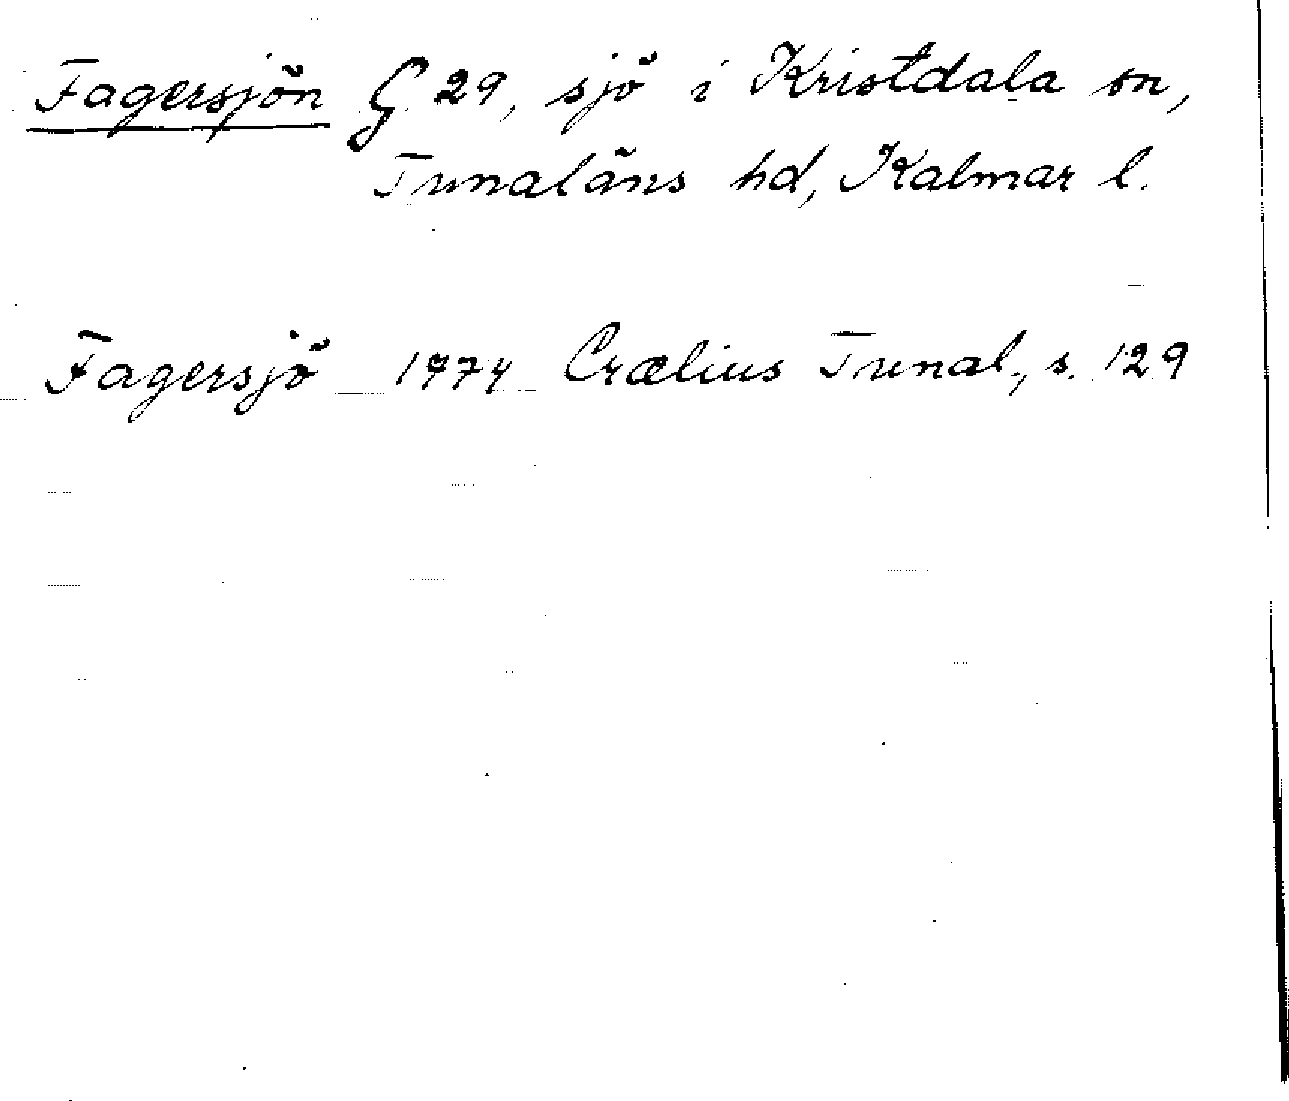 Fagersjön G 29, sjö i Kristdala sn,
Tunaläns hd, Kalmar l.
Fagersjö 1774 Crælius Tunal., s. 129